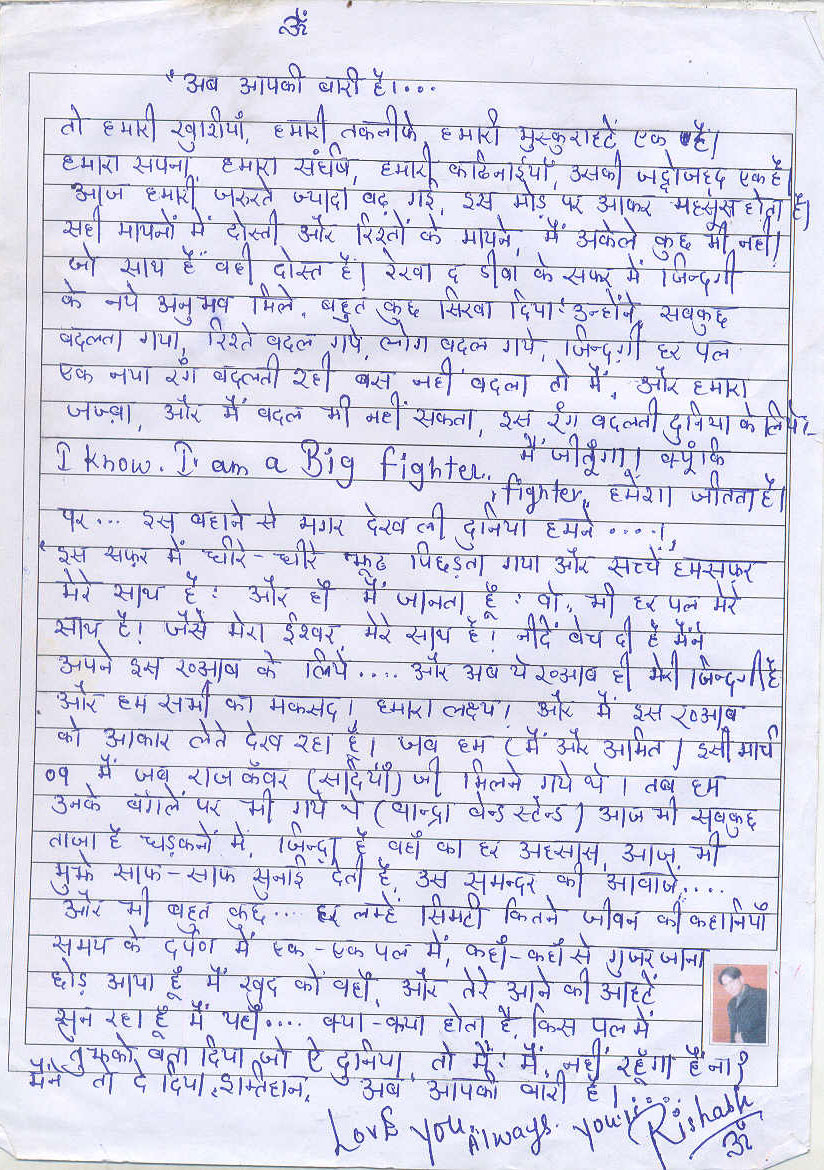 ॐ
"अब आपकी बारी है।...
तो हमारी खुशीयाँ, हमारी तकलीफे, हमारी मुस्कुराहटें एक है।
हमारा सपना, हमारा संघर्ष, हमारी कठिनाईयाँ, उसकी जद्दोजहद एक है।
आज हमारी जरुरते ज्यादा बढ़ गई, इस मोड़ पर आकर महसूस होता है।
सही मायनों में दोस्ती और रिश्तों के मायने, मैं अकेले कुछ भी नही।
जो साथ हैं वही दोस्त हैं। रेखा द डीवा के सफर में जिन्दगी
के नये अनुभव मिले, बहुत कुछ सिखा दिया उन्होंने, सबकुछ
बदलता गया, रिश्ते बदल गये, लोग बदल गये, जिन्दग़ी हर पल
एक नया रंग बदलती रही बस नहीं बदला तो मैं, और हमारा
जज्बा, और मैं बदल भी नहीं सकता, इस रंग बदलती दुनिया के लिये।-
मैं जीतूँगा। क्यूंकि
I know. I am a Big fighter.
"fighter" हमेशा जीतता है।
पर... इस बहाने से मगर देख ली दुनिया हमने ....।"
"इस सफर में धीरे-धीरे झूठ पिछड़ता गया और सच्चे हमसफर
मेरे साथ है: और हाँ मैं जानता हूँ: वो, भी हर पल मेरे
साथ है! जैसे मेरा ईश्वर मेरे साथ है! नींदे बेच दी है मैंने
अपने इस ख्आब के लिये .... और अब ये ख्आब ही मेरी जिन्दगी है
और हम सभी का मकसद। हमारा लक्ष्य। और मैं इस ख्आब
को आकार लेते देख रहा हूँ। जब हम (मैं और अमित) इसी मार्च
09 में जब राज कँवर (सादियाँ) जी मिलने गये थे। तब हम
उनके बंगलें पर भी गये थे (बान्द्रा बेन्ड स्टेन्ड) आज भी सबकुछ
ताजा है धड़कनों में, जिन्दा है वहाँ का हर अहसास, आज, भी
मुझे साफ-साफ सुनाई देती है, उस समन्दर की आवाजें....
और भी बहुत कुछ... हर लम्हें सिमटी कितने जीवन की कहानियाँ
समय के दर्पण में एक-एक पल में, कहाँ-कहाँ से गुजर जाना
छोड़ आया हूँ मैं खुद को वहाँ, और तेरे आने की आहटें
सुन रहा हूँ मैं यहाँ.... क्या-क्या होता है, किस पल में
तुझको बता दिया जो ऐ दुनिया, तो मैं: मैं, नहीं रहूँगा हैं ना?
मैंने तो दे दिया, इम्तिहान, अब आपकी बारी है।.....
Love you Always. your
Rishabh
ॐ